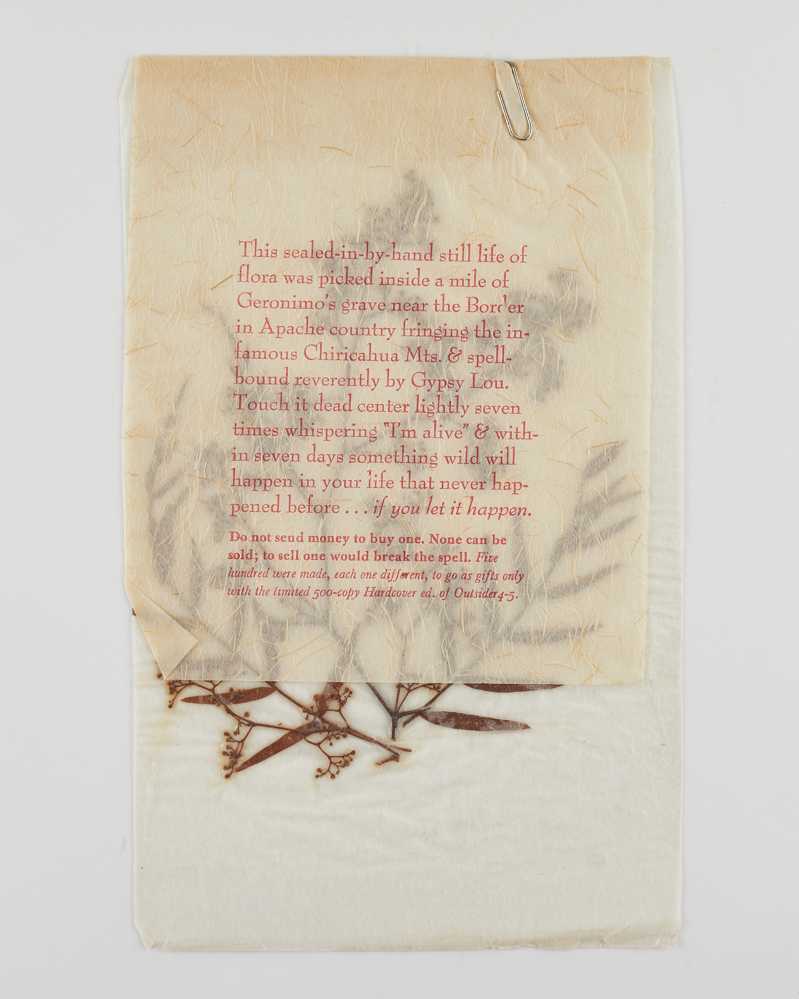 This sealed-in-by-hand still life of
flora was picked inside a mile of
Geronimo's grave near the Border
in Apache country fringing the in-
famous Chiricahua Mts. & spell-
bound reverently by Gypsy Lou.
Touch it dead center lightly seven
times whispering "I'm alive" & with-
in seven days something wild will
happen in your life that never hap-
pened before . . . if you let it happen.
Do not send money to buy one. None can be
sold; to sell one would break the spell. Five
hundred were made, each one different, to go as gifts only
with the limited 500-copy Hardcover ed. of Outsider 4-5.